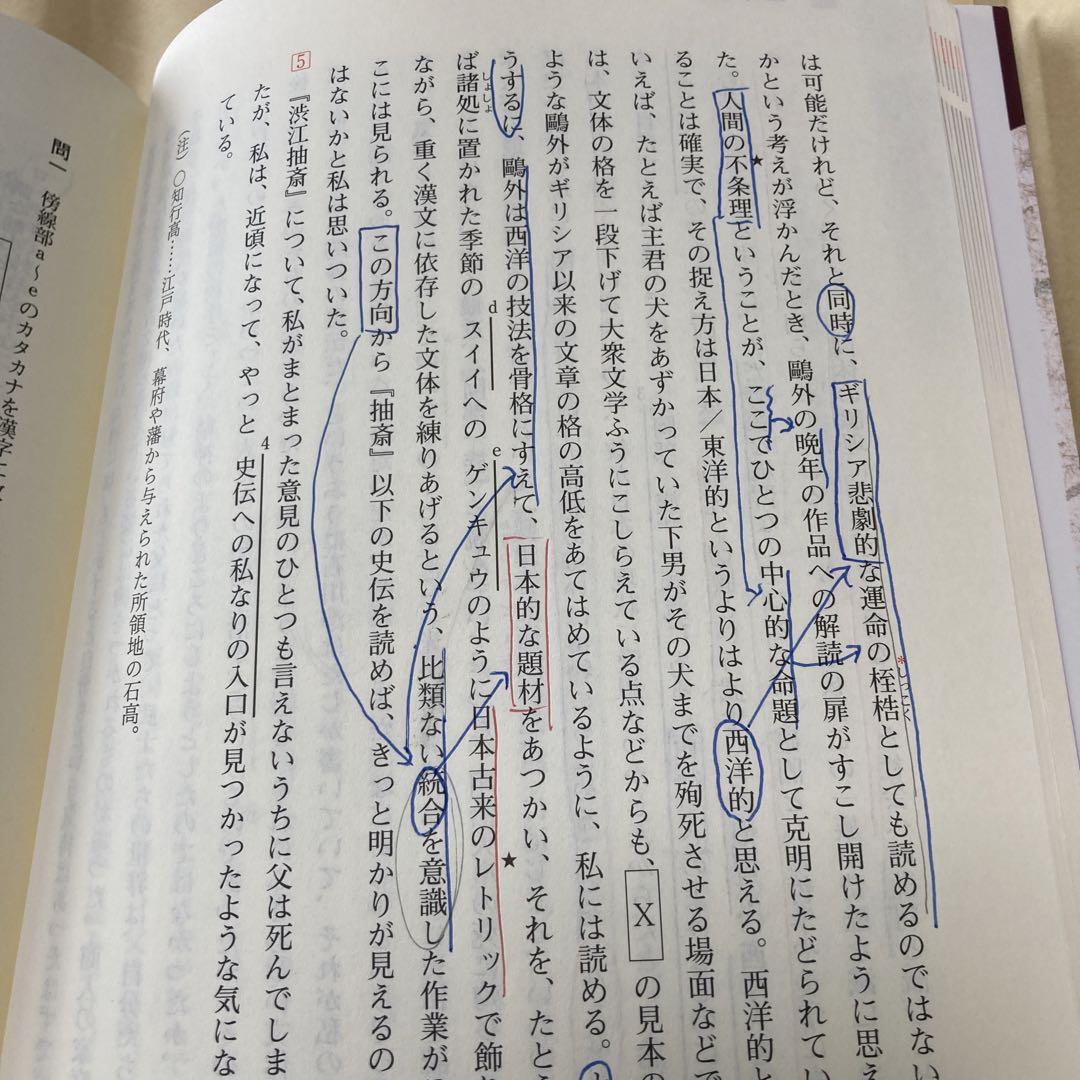 は可能だけれど、それと同時に、ギリシア悲劇的な運命の桎梏としても読めるのではない
しっこく
かという考えが浮かんだとき、鷗外の晩年の作品への解読の扉がすこし開けたように思え
た。人間の不条理ということが、ここでひとつの中心的な命題として克明にたどられてい
ることは確実で、その捉え方は日本／東洋的というよりはより西洋的と思える。西洋的と
いえば、たとえば主君の犬をあずかっていた下男がその犬までを殉死させる場面などで
は、文体の格を一段下げて大衆文学ふうにこしらえている点などからも、X の見本の
ような鷗外がギリシア以来の文章の格の高低をあてはめているように、私には読める。
うするに、鷗外は西洋の技法を骨格にすえて、日本的な題材をあつかい、それを、たと
ば諸処に置かれた季節のスイイへのゲンキュウのように日本古来のレトリックで飾り
しょしょ
d
e
ながら、重く漢文に依存した文体を練りあげるという、比類ない統合を意識した作業が
こには見られる。この方向から『抽斎』以下の史伝を読めば、きっと明かりが見えるの
はないかと私は思いついた。
5
『渋江抽斎』について、私がまとまった意見のひとつも言えないうちに父は死んでしま
たが、私は、近頃になって、やっと史伝への私なりの入口が見つかったような気にな
4
ている。
（注）〇知行高……江戸時代、幕府や藩から与えられた所領地の石高。
問一 傍線部a〜eのカタカナを漢字に